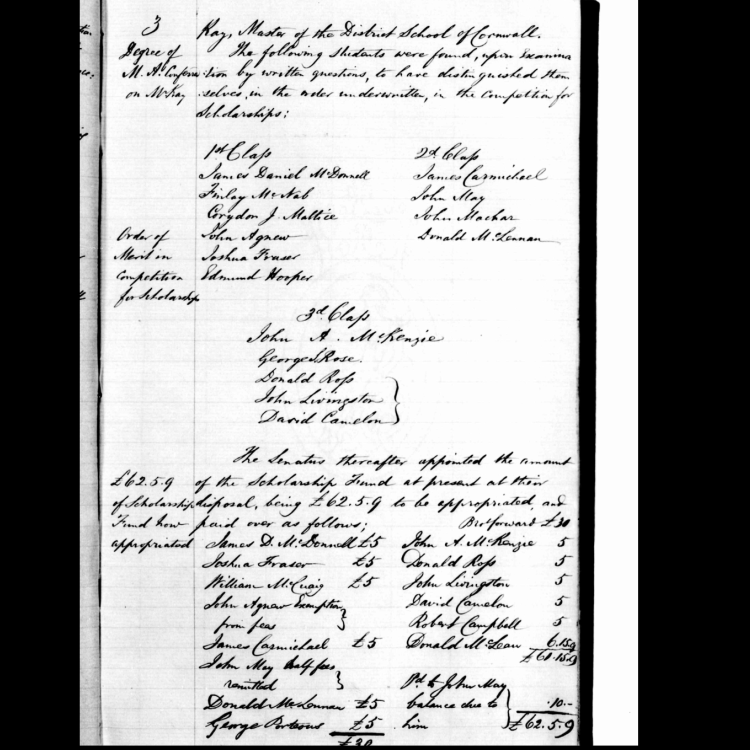 3
Kay, Master of the District School of Cornwall.
Degree of
M. A. Conferr
on McKay
The following Students were found, upon Examina
tion by written questions, to have distinguished them
selves, in the order underwritten, in the Competition for
Scholarships:
1st Class
James Daniel McDonnell
Finlay McNab
Corydon J. Mattice
John Agnew
Joshua Fraser
Edmund Hooper
2d. Class
James Carmichael
John May
John Machar
Donald McLennan
Order of
Merit in
Competition
for Scholarship
3d. Class
John A. McKenzie
George S. Rose.
Donald Ross
John Livingston
David Camelon
The Senatus thereafter appointed the amount
of the Scholarship Fund at present at their
disposal, being £62.5.9 to be appropriated, and
paid over as follows;
£62.5.9
of Scholarship
Fund how
appropriated
James D. McDonnell £5
Joshua Fraser £5
William McCuaig £5
John Agnew Exemption
from fees
James Carmichael £5
John May half fees
remitted
Donald McLennan £5
George Porteous £5
£30
Brt forward £30
John A. McKenzie 5
Donald Ross 5
John Livingston 5
David Camelon 5
Robert Campbell 5
Donald McLean 6.15.9
£61.15.9
Pd. to John May
balance due to
him
.10.-
£62.5.9